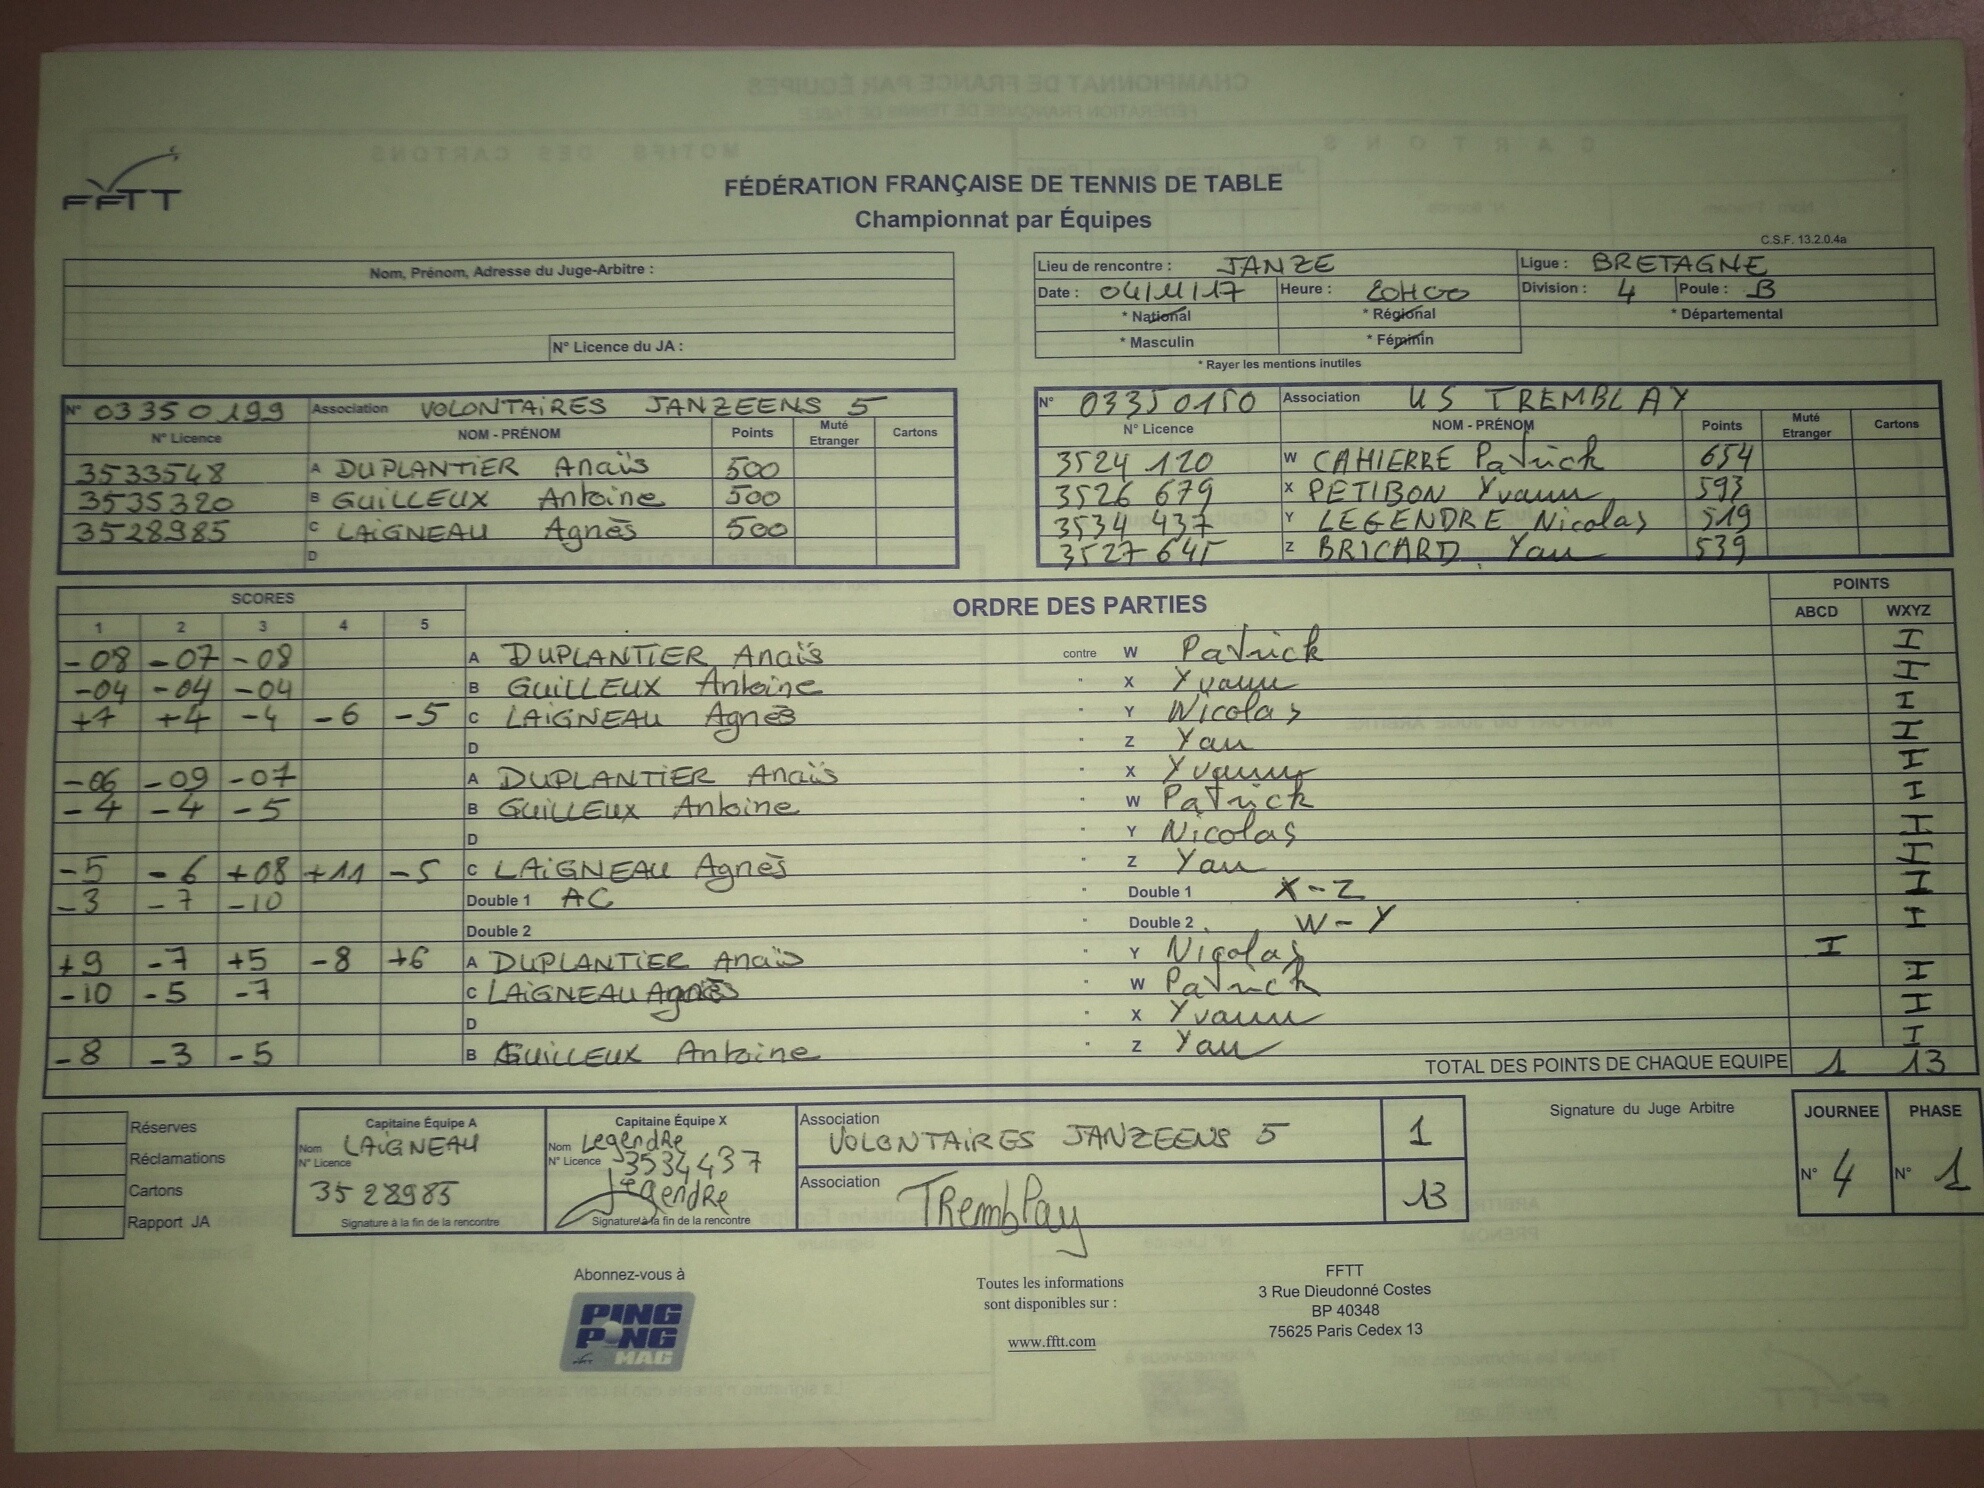 FFTT
FÉDÉRATION FRANÇAISE DE TENNIS DE TABLE
Championnat par Équipes
C.S.F. 13.2.0.4a
Nom, Prénom, Adresse du Juge-Arbitre :
N° Licence du JA :
Lieu de rencontre : JANZE Ligue : BRETAGNE
Date : 04/11/17 Heure : 20H00 Division : 4 Poule : B
* National * Régional * Départemental
* Masculin * Féminin
* Rayer les mentions inutiles
N° 03350199 Association VOLONTAIRES JANZEENS 5
N° Licence NOM - PRÉNOM Points Muté Etranger Cartons
3533548 A DUPLANTIER Anaïs 500
3535320 B GUILLEUX Antoine 500
3528985 C LAIGNEAU Agnès 500
D
N° 03350150 Association US TREMBLAY
N° Licence NOM - PRÉNOM Points Muté Etranger Cartons
3524 120 W CAHIERRE Patrick 654
3526 679 X PETIBON Yvann 593
3534 437 Y LEGENDRE Nicolas 519
3527 645 Z BRICARD Yan 539
SCORES ORDRE DES PARTIES POINTS
1 2 3 4 5 ABCD WXYZ
-08 -07 -08 A DUPLANTIER Anaïs contre W Patrick I
-04 -04 -04 B GUILLEUX Antoine " X Yvann I
+7 +4 -4 -6 -5 C LAIGNEAU Agnès " Y Nicolas I
D " Z Yan I
-06 -09 -07 A DUPLANTIER Anaïs " X Yvann I
-4 -4 -5 B GUILLEUX Antoine " W Patrick I
D " Y Nicolas I
-5 -6 +08 +11 -5 C LAIGNEAU Agnès " Z Yan I
-3 -7 -10 Double 1 AC " Double 1 X-Z I
Double 2 " Double 2 W-Y I
+9 -7 +5 -8 +6 A DUPLANTIER Anaïs " Y Nicolas I
-10 -5 -7 C LAIGNEAU Agnès " W Patrick I
D " X Yvann I
-8 -3 -5 B GUILLEUX Antoine " Z Yan I
TOTAL DES POINTS DE CHAQUE EQUIPE 1 13
Réserves
Réclamations
Cartons
Rapport JA
Capitaine Équipe A
Nom LAIGNEAU
N° Licence
3528985
Signature à la fin de la rencontre
Capitaine Équipe X
Nom Legendre
N° Licence 3534437
Legendre
Signature à la fin de la rencontre
Association VOLONTAIRES JANZEENS 5 1
Association Tremblay 13
Signature du Juge Arbitre
JOURNEE PHASE
N° 4 N° 1
Abonnez-vous à
PING PONG MAG
Toutes les informations
sont disponibles sur :
www.fftt.com
FFTT
3 Rue Dieudonné Costes
BP 40348
75625 Paris Cedex 13